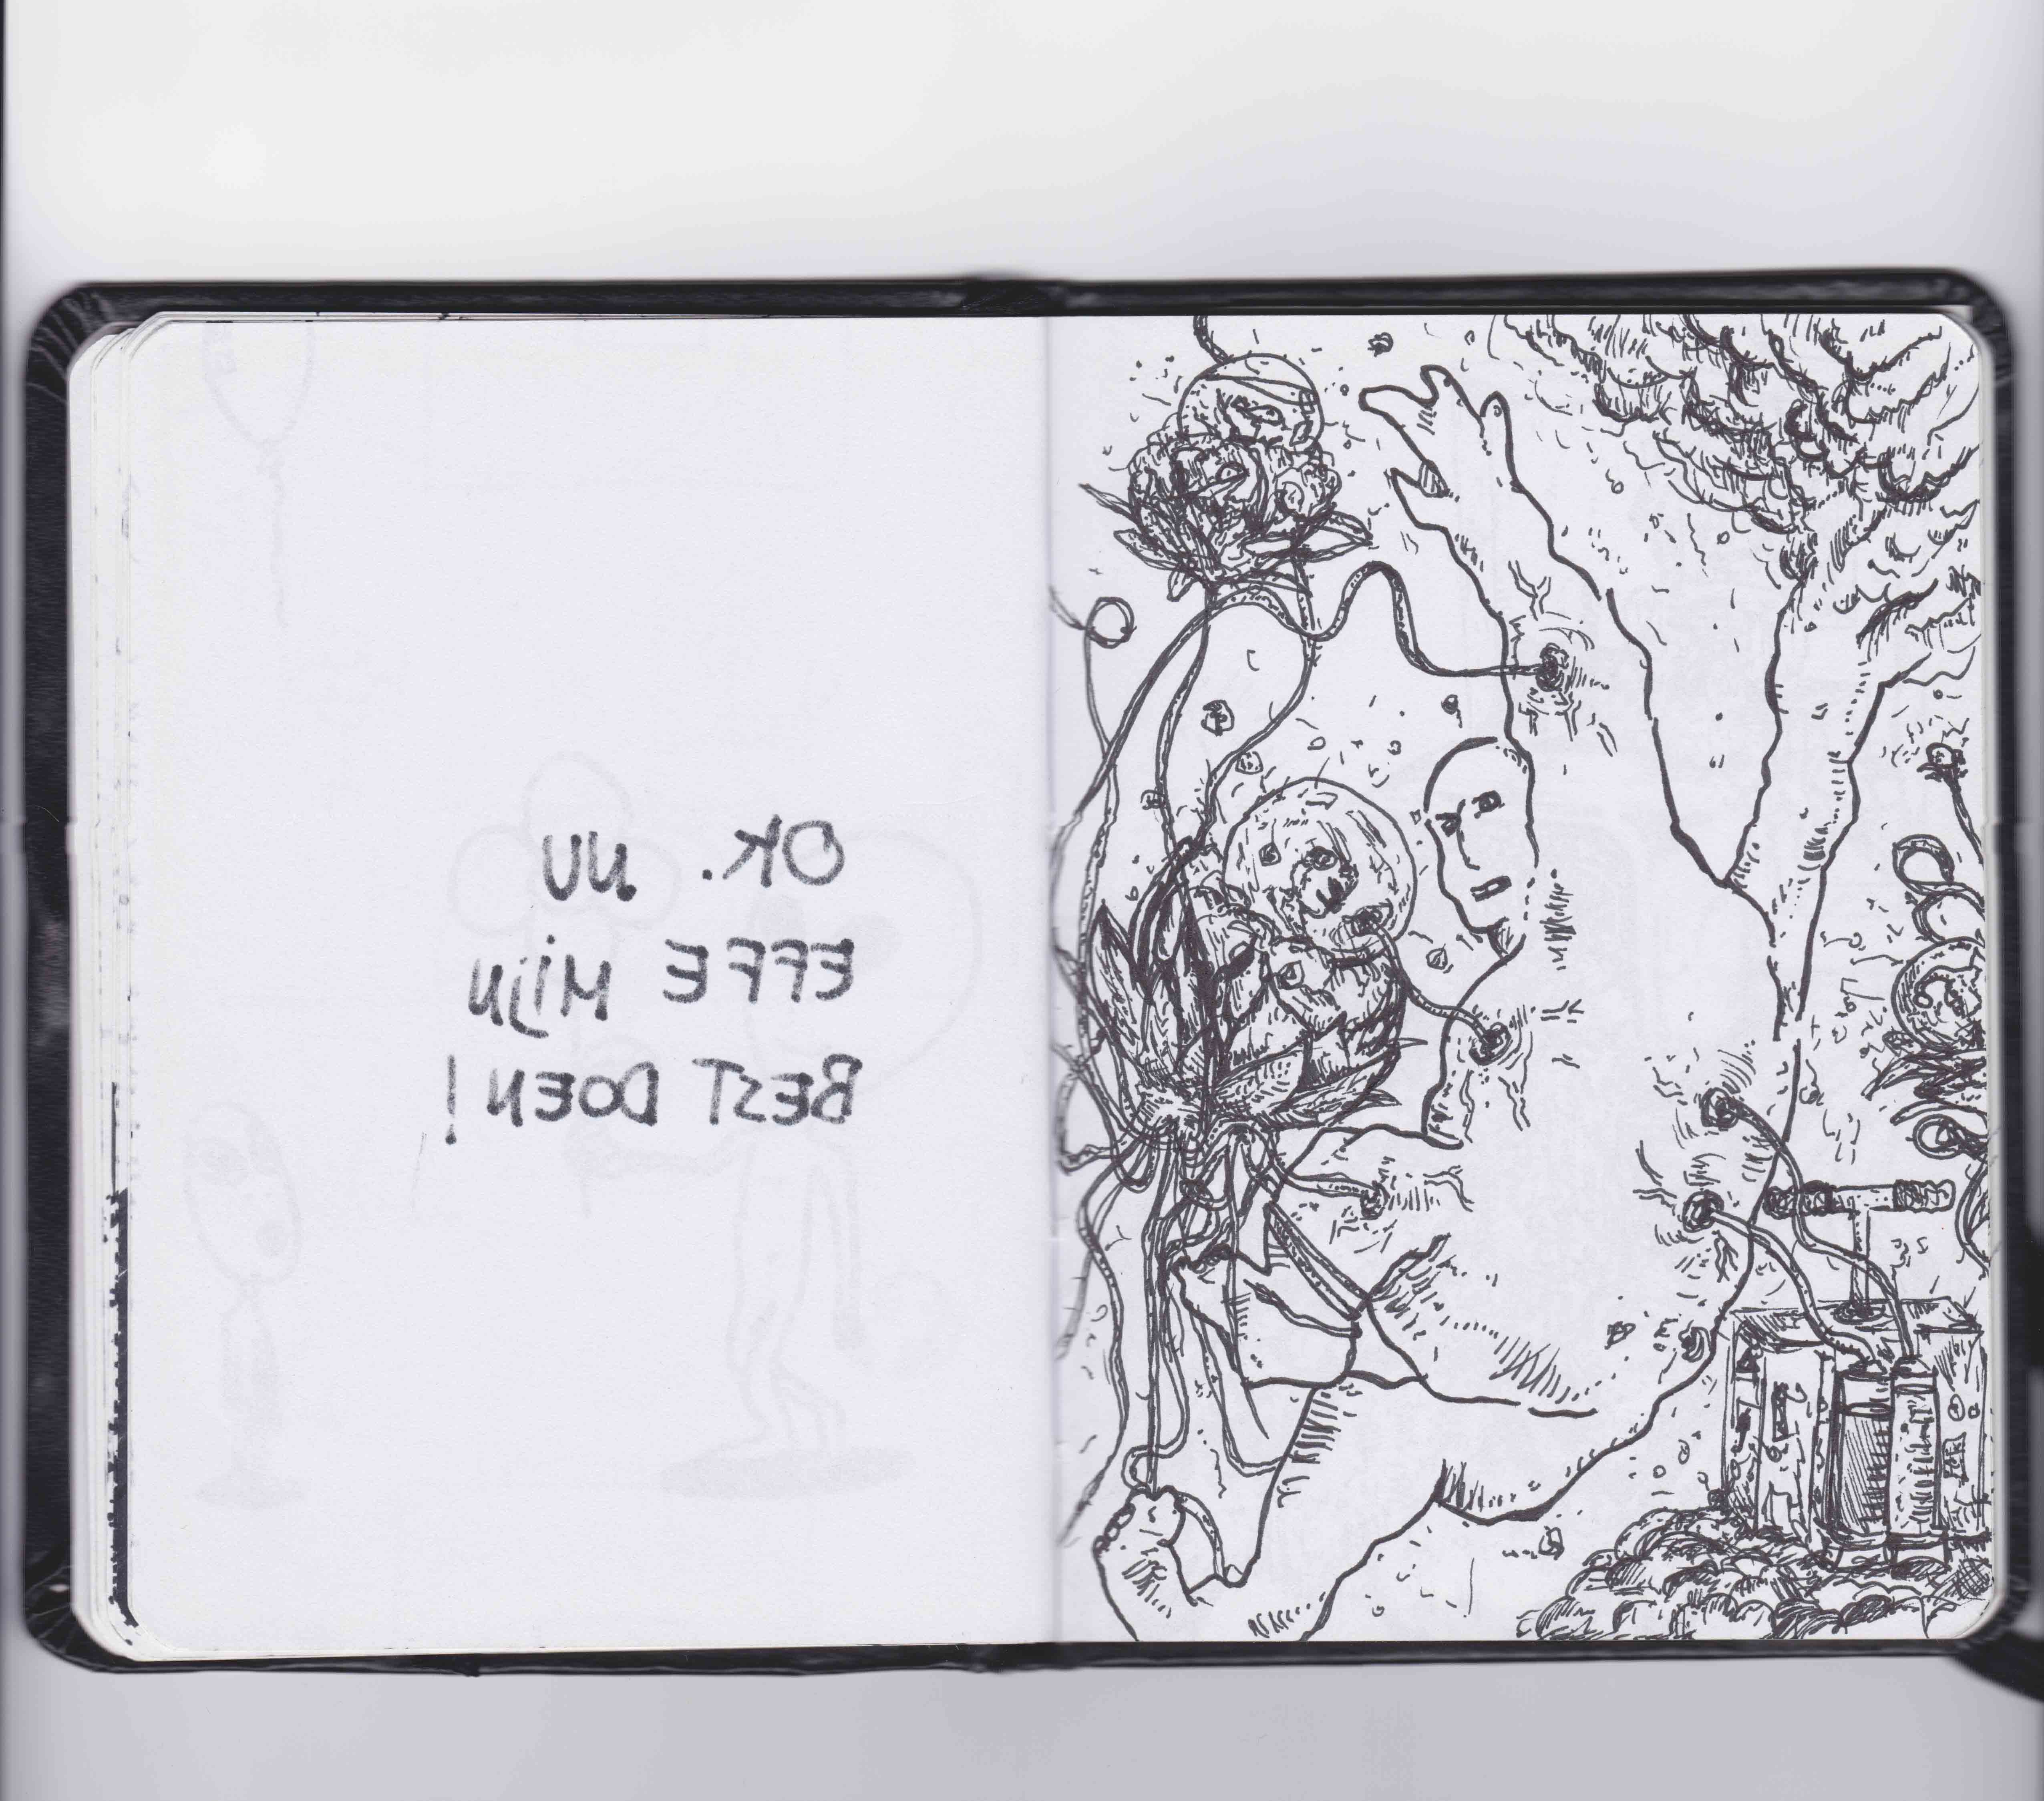 OK. NU
EFFE MIJN
BEST DOEN!